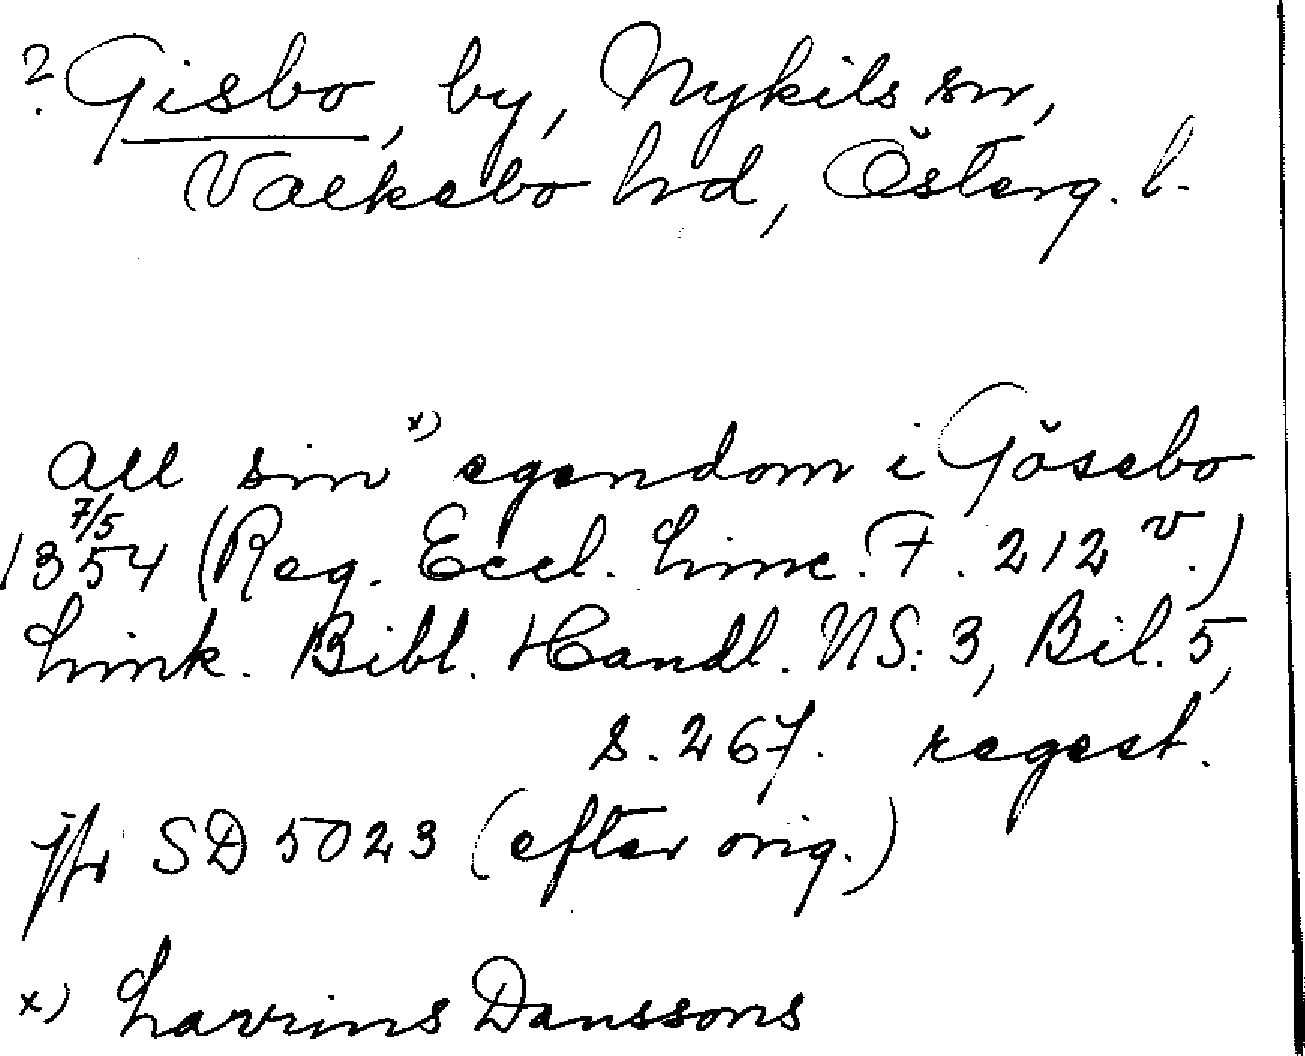 ? Gisbo, by, Nykils sn,
Valkebo hd, Österg. l.
All sin x) egendom i Gösebo
7/5
1354 (Reg. Eccl. Linc. F. 212 v.)
Link. Bibl. Handl. NS: 3, Bil. 5,
s. 267. regest.
jfr SD 5023 (efter orig.)
x) Lavrins Danssons